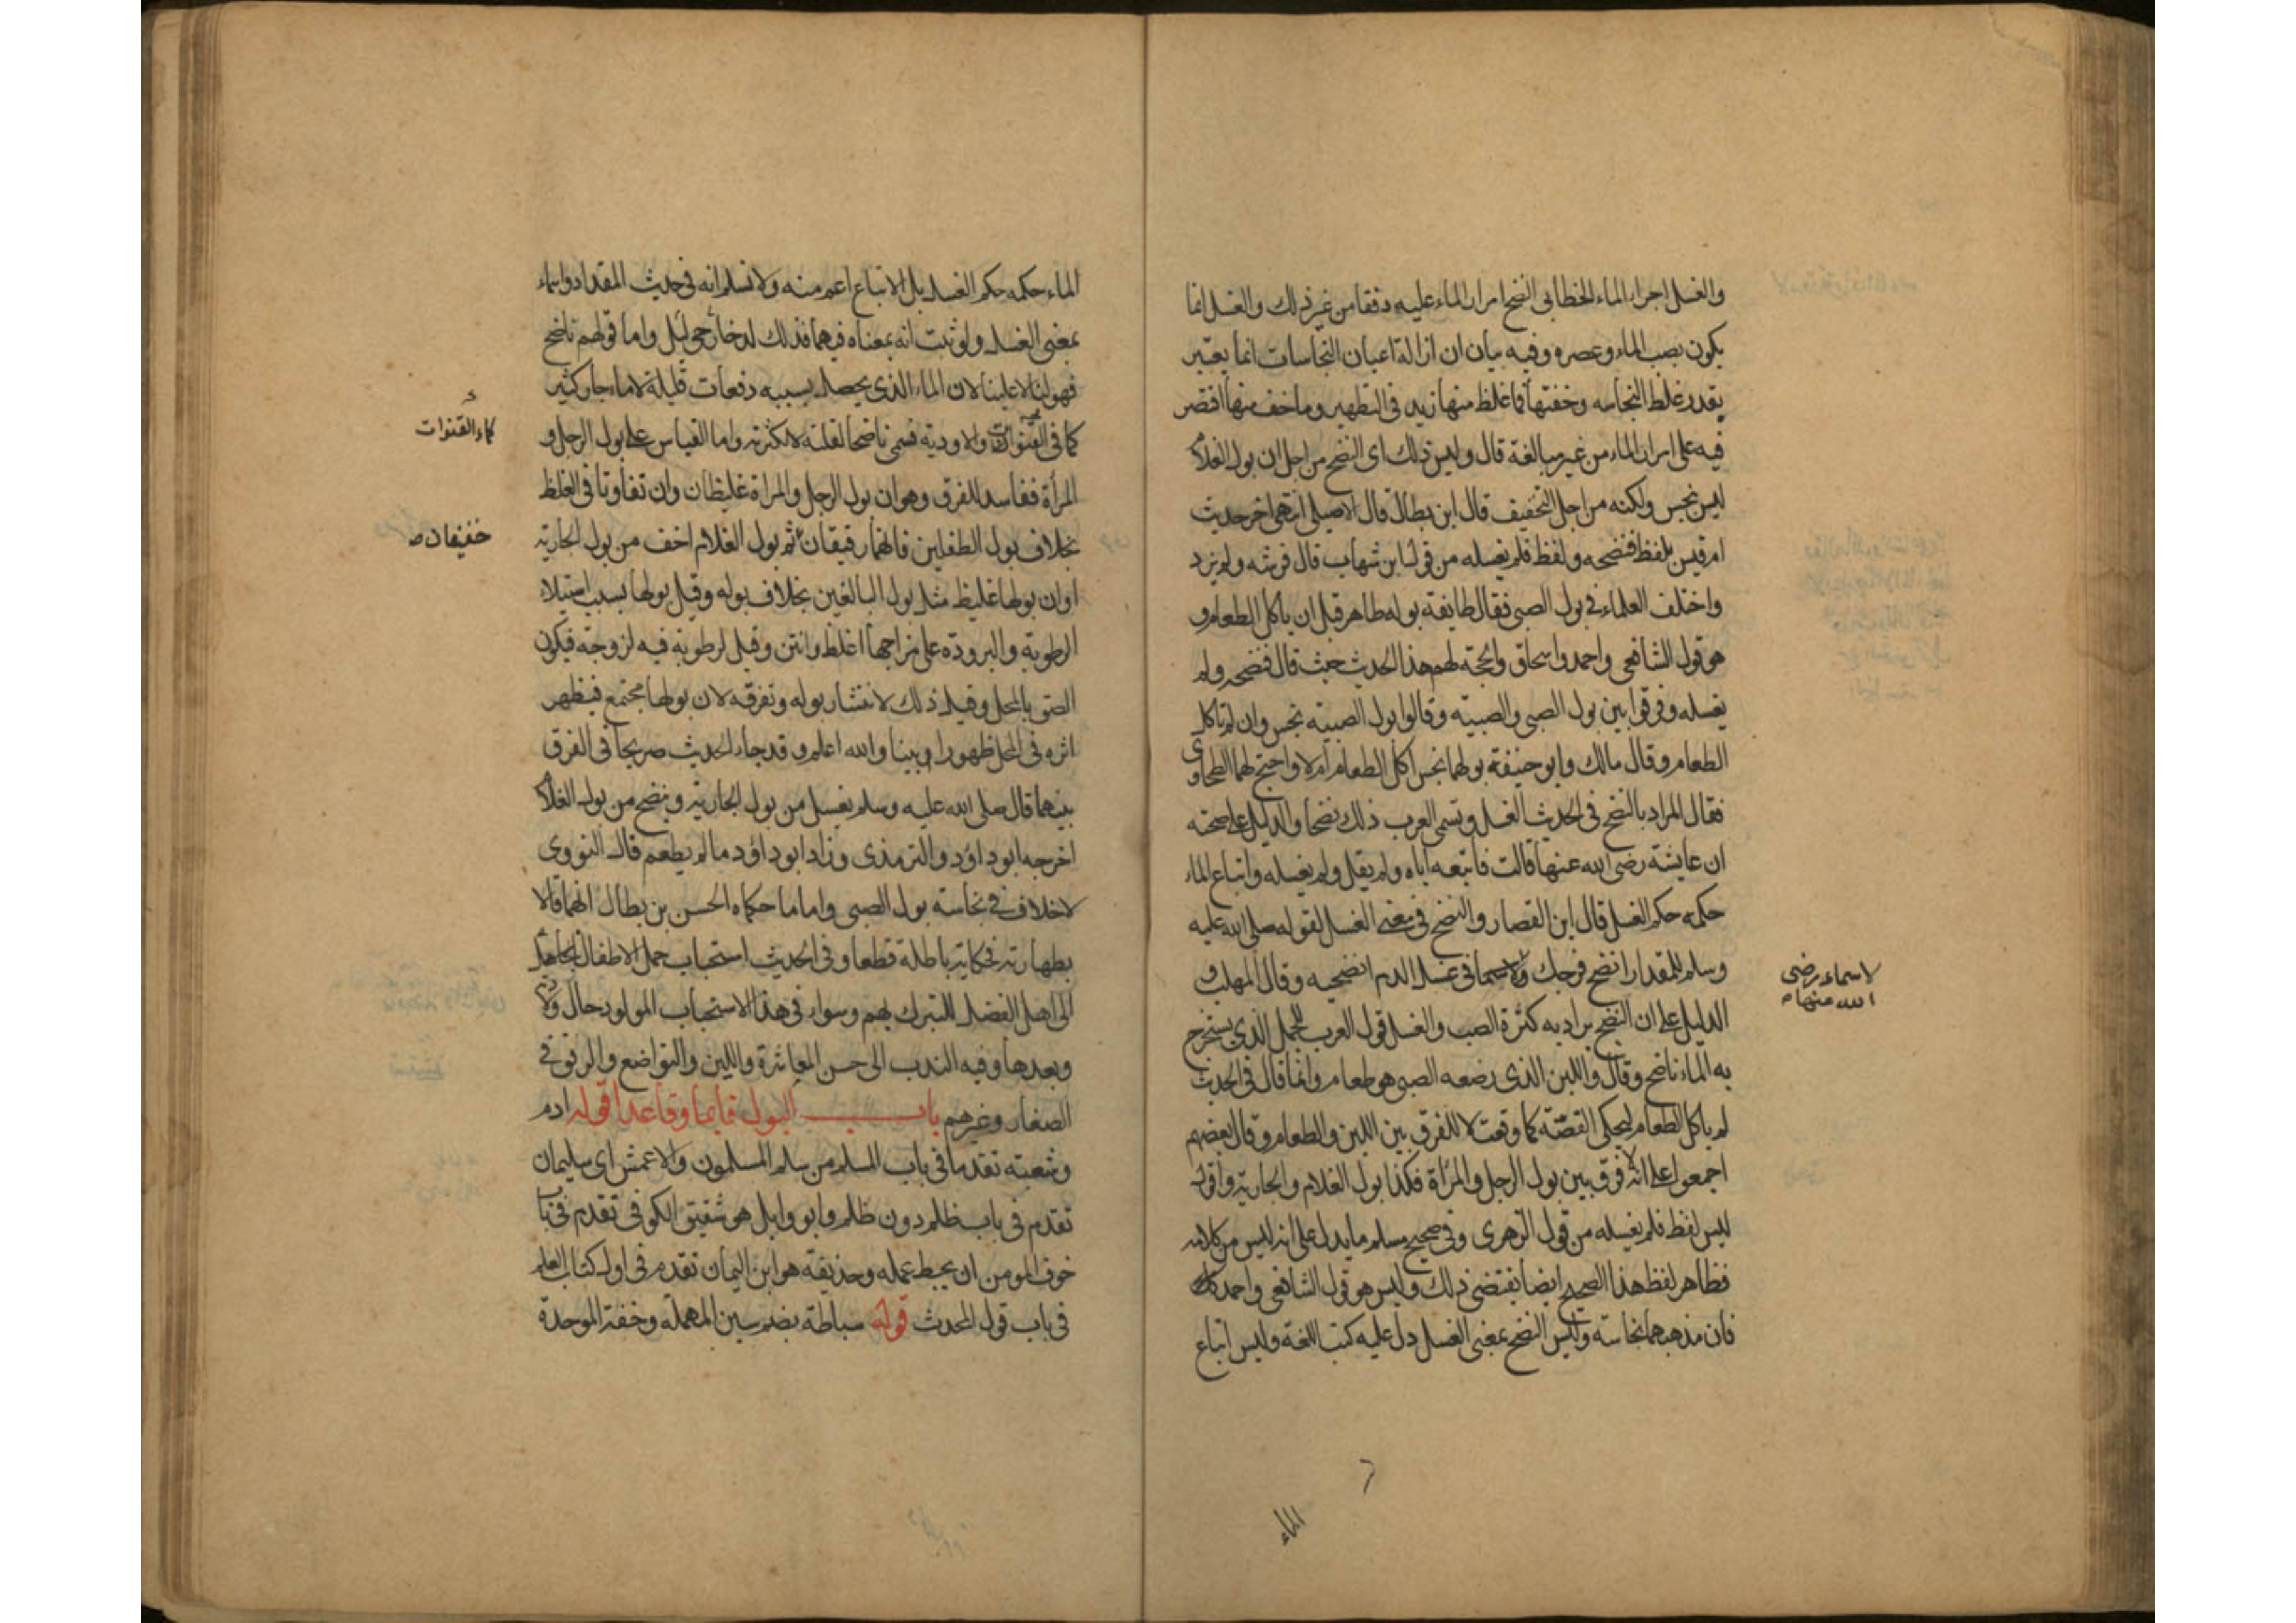 والغسل اجراء الماء الخطابي النضح امرار الماء عليه دفقا من غير ذلك والغسل انما
يكون بصب الماء وعصره وفيه بيان ان ازالة اعيان النجاسات انما يعتبر
بقدر غلظ النجاسه وخفتها فما غلظ منها زيد في التطهير وما خف منها اقتصر
فيه على امرار الماء من غير مبالغة قال وليس ذلك اى النضح من اجل ان بول الغلام
ليس نجس ولكنه من اجل التخفيف قال ابن بطال قال الاصيلي انتهى اخر حديث
ام قيس بلفظ فنضحه ولفظ فلم يغسله من قول ابن شهاب قال فرشه ولم يزد
واختلف العلماء في بول الصبى فقال طايفة بوله طاهر قبل ان ياكل الطعام و
هو قول الشافعى واحمد واسحاق والحجة لهم هذا الحديث حيث قال فنضحه ولم
يغسله وفرقوا بين بول الصبى والصبيه وقالوا بول الصبيه نجس وان لم تاكل
الطعام وقال مالك وابو حنيفة بولهما نجس اكل الطعام ام لا واحتج لهما الطحاوى
فقال المراد بالنضح في الحديث الغسل وتسمى العرب ذلك نضحا والدليل على صحته
ان عايشة رضى الله عنها قالت فاتبعه اياه ولم يقل ولم يغسله واتباع الماء
حكمه حكم الغسل قال ابن القصار والنضح في معنى الغسل لقوله صلى الله عليه
وسلم للمقداد انضح فرجك ولاسما في غسل الدم انضحيه وقال المهلب و
لاسماء رضى
الله عنها
الدليل على ان النضح يراد به كثرة الصب والغسل قول العرب للجمل الذى يستخرج
به الماء ناضح وقال واللبن الذى رضعه الصبى هو طعام وانما قال في الحديث
لم ياكل الطعام ليحكى القصة كما وقعت لا للفرق بين اللبن والطعام وقال بعضهم
اجمعوا على انه لا فرق بين بول الرجل والمرأة فكذا بول الغلام والجارية واقول
ليس لفظ فلم يغسله من قول الزهرى وفي صحيح مسلم ما يدل على انه ليس من كلامه
فظاهر لفظ هذا الصحيح ايضا يقتضى ذلك وليس هو قول الشافعى واحمد
فان مذهبهما نجاسته وليس النضح بمعنى الغسل دل عليه كتب اللغة وليس اتباع
الماء
الماء حكمه حكم الغسل بل الاتباع اعم منه ولا نسلم انه في حديث المقداد واسماء
بمعنى الغسل ولو ثبت انه بمعناه فيهما فذلك لدخارجى لدليل واما قولهم ناضح
فهو لنا لا علينا لان الماء الذى يحصل بسببه دفعات قليلة لا ماء جار كثير
كما في القنوات والاودية فسمى ناضحا لقلته لا لكثرته واما القياس على بول الرجل و
كماء القنوات
المرأة ففاسد للفرق وهو ان بول الرجل والمراة غليظان وان تفاوتا في الغلظ
بخلاف بول الطفلين فانهما رقيقان ثم بول الغلام اخف من بول الجارية
خفيفان
او ان بولها غليظ مثل بول البالغين بخلاف بوله وقيل بولها بسبب استيلاء
الرطوبة والبرودة على مزاجها اغلظ وانتن وقيل لرطوبة فيه لزوجة فيكون
الصق بالمحل وقيل ذلك لانتشار بوله وتفرقه لان بولها مجتمع فيظهر
اثره في المحل ظهورا بينا والله اعلم وقد جاء الحديث صريحا في الفرق
بينهما قال صلى الله عليه وسلم يغسل من بول الجارية وينضح من بول الغلام
اخرجه ابو داود والترمذى وزاد ابو داود ما لم يطعم قال النووى
لا خلاف في نجاسة بول الصبى واما ما حكاه الحسن بن بطال انهما قالا
بطهارته فحكاية باطلة قطعا وفي الحديث استحباب حمل الاطفال
الى اهل الفضل للتبرك بهم وسواء في هذا الاستحباب المولود حال ولادته
وبعدها وفيه الندب الى حسن المعاشرة واللين والتواضع والرفق في
الصغار وغيرهم باب البول قايما وقاعدا قوله ادم
وشعبة تقدما في باب المسلم من سلم المسلمون والاعمش اى سليمان
تقدم في باب ظلم دون ظلم وابو وايل هو شقيق الكوفي تقدم في باب
خوف المومن ان يحبط عمله وحذيفة هو ابن اليمان تقدم في اول كتاب العلم
في باب قول المحدث قوله سباطة بضم سين المهملة وخفة الموحدة